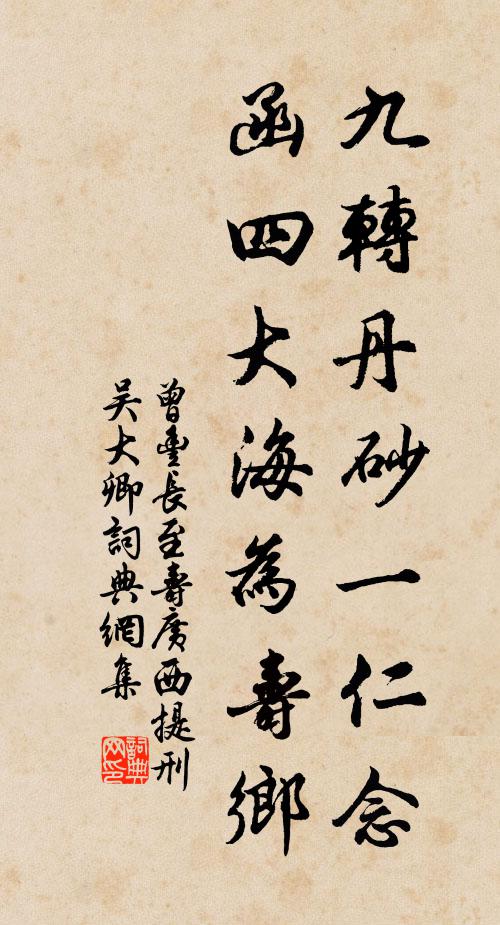 九轉丹砂一仁念
函四大海為壽鄉
曾豐長至壽廣西提刑
吴大卿詞典網集
詞典
网印